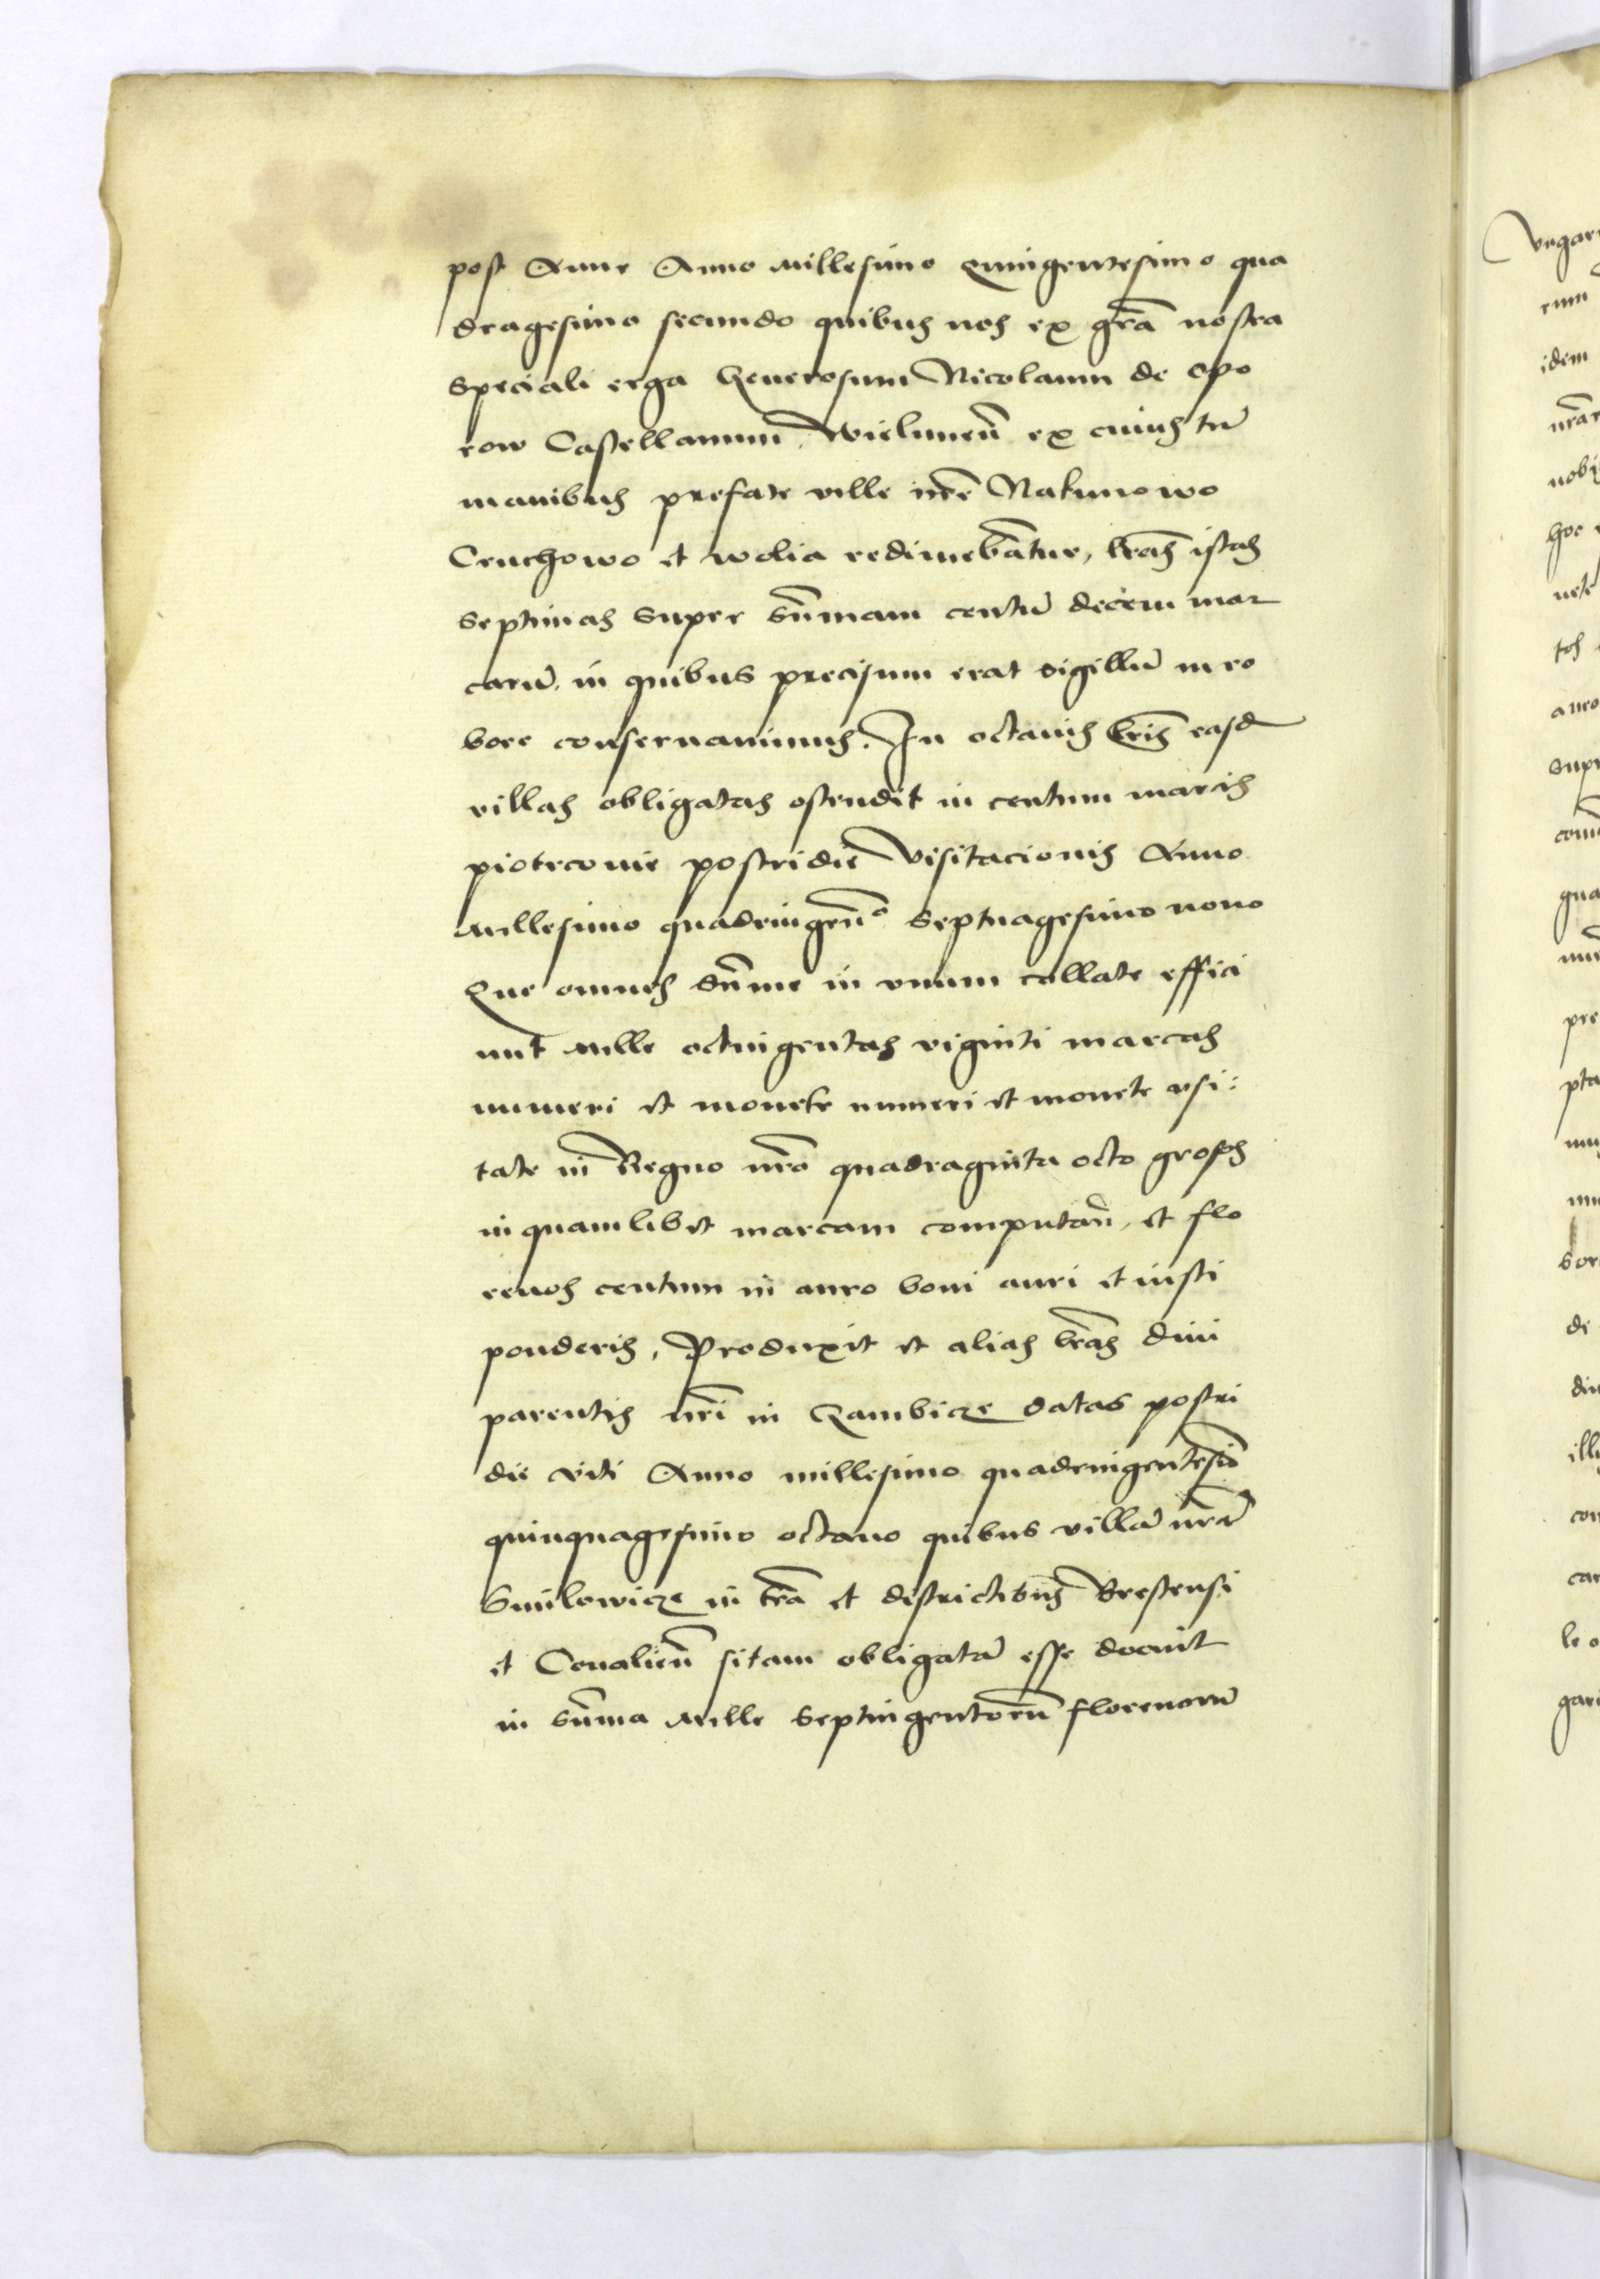 post Anne Anno Millesimo Quingentesimo qua
dragesimo secundo quibus nos ex gr̃a nostra
Speciali erga Generosum Nicolaum de Opo
row Castellanum Wielunen̄ ex cuius tū
manibus prefate ville nr̃e Nakunowo
Cruchowo et wolia redimebãtur, lr̃as istas
Septimas super sum̄am centū decem mar
carū, in quibus precisum erat sigillū in ro
bore conservavimus. In octavis lr̃is easd̄
villas obligatas ostendit in centum marcis
piotrcovie postridie Visitacionis Anno
Millesimo quadringen̄º Septuagesimo nono
Que omnes sum̄e in unum collate effici
unt Mille octingentas viginti marcas
numeri et monete numeri et monete usi:
tate in Regno nr̃o quadraginta octo grosſ
in quamlibet marcam computan̄, et flo
renos centum in auro boni auri et iusti
ponderis, Produxit et alias lr̃as divi
parentis nr̃i in Gambicze datas postri
die viti Anno millesimo quadringentesīo
quinquagesimo octavo quibus villā nr̃ā
Smilowicze in tr̃a et districtibus Brestensi
et Covalien̄ sitam obligatā esse docuit
in sum̄a Mille Septingentorū florenorū
Vngar
rum
idem
nobis
hoc
tos
auro
supr
pre
pta
bor
di
illu
con
car
le o
gari